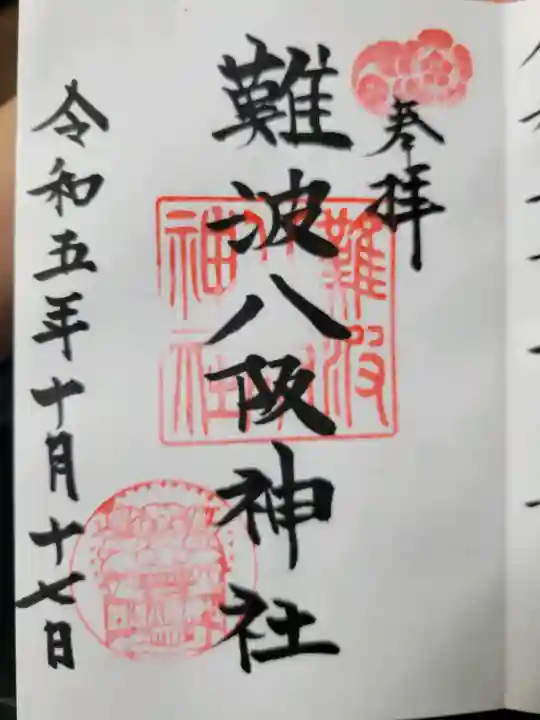 奉拝
難波八阪神社
難波
神社
令和五年十月十七日